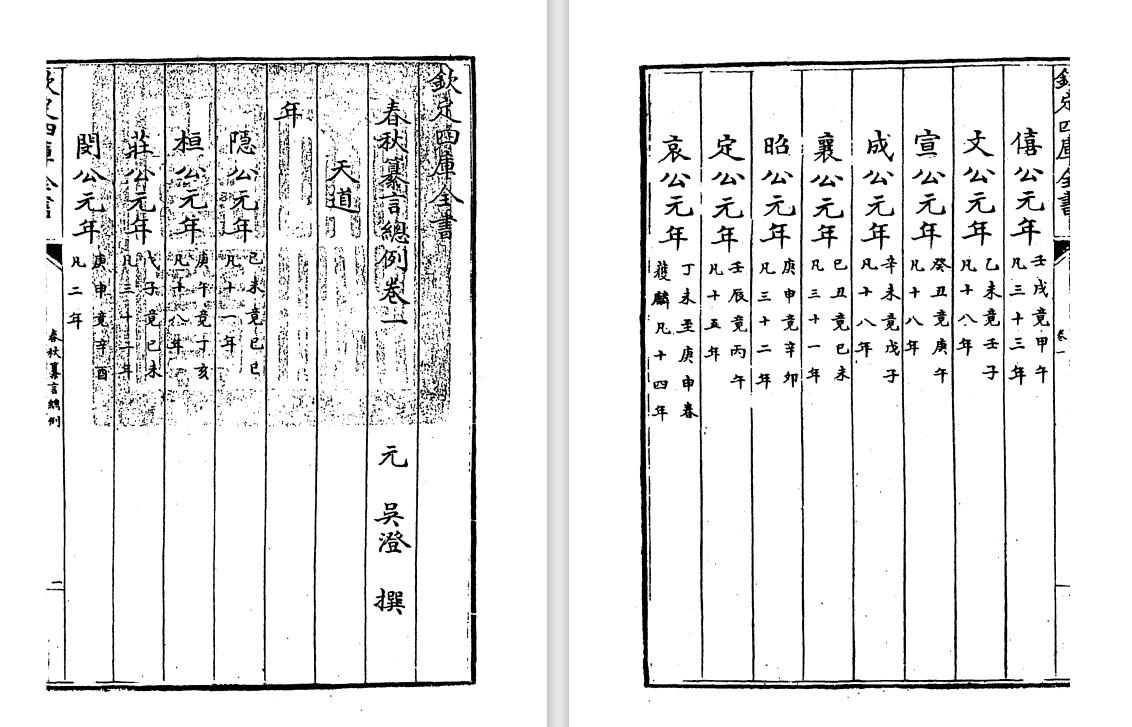 欽定四庫全書
春秋纂言總例卷一 元 吳澄 撰
天道
年
隱公元年 己未竟己巳
凡十一年
桓公元年 庚午竟丁亥
凡十八年
莊公元年 戊子竟己未
凡三十二年
閔公元年 庚申竟辛酉
凡二年
欽定四庫全書 春秋纂言總例
欽定四庫全書 卷一
僖公元年 壬戌竟甲午
凡三十三年
文公元年 乙未竟壬子
凡十八年
宣公元年 癸丑竟庚午
凡十八年
成公元年 辛未竟戊子
凡十八年
襄公元年 己丑竟己未
凡三十一年
昭公元年 庚申竟辛卯
凡三十二年
定公元年 壬辰竟丙午
凡十五年
哀公元年 丁未至庚申春
獲麟凡十四年